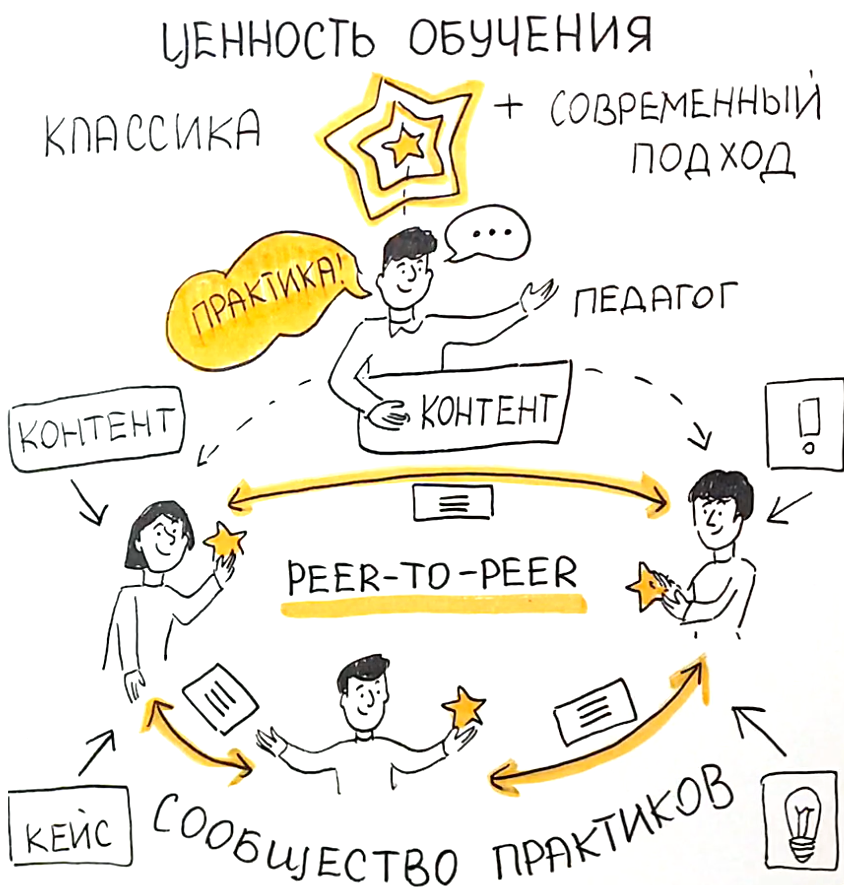 ЦЕННОСТЬ ОБУЧЕНИЯ
КЛАССИКА
+ СОВРЕМЕННЫЙ
ПОДХОД
...
ПРАКТИКА!
ПЕДАГОГ
КОНТЕНТ
КОНТЕНТ
!
PEER-TO-PEER
КЕЙС
СООБЩЕСТВО ПРАКТИКОВ